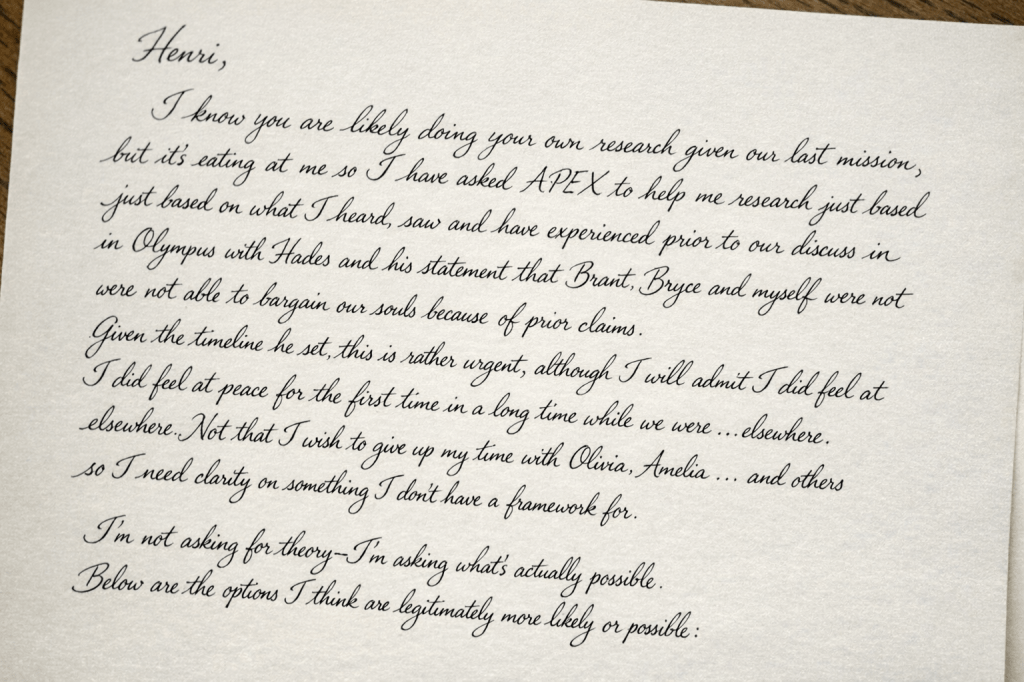 Henri,
I know you are likely doing your own research given our last mission,
but it's eating at me so I have asked APEX to help me research just based
just based on what I heard, saw and have experienced prior to our discuss in
in Olympus with Hades and his statement that Brant, Bryce and myself were not
were not able to bargain our souls because of prior claims.
Given the timeline he set, this is rather urgent, although I will admit I did feel at
I did feel at peace for the first time in a long time while we were ... elsewhere.
elsewhere. Not that I wish to give up my time with Olivia, Amelia ... and others
so I need clarity on something I don't have a framework for.
I'm not asking for theory—I'm asking what's actually possible.
Below are the options I think are legitimately more likely or possible: